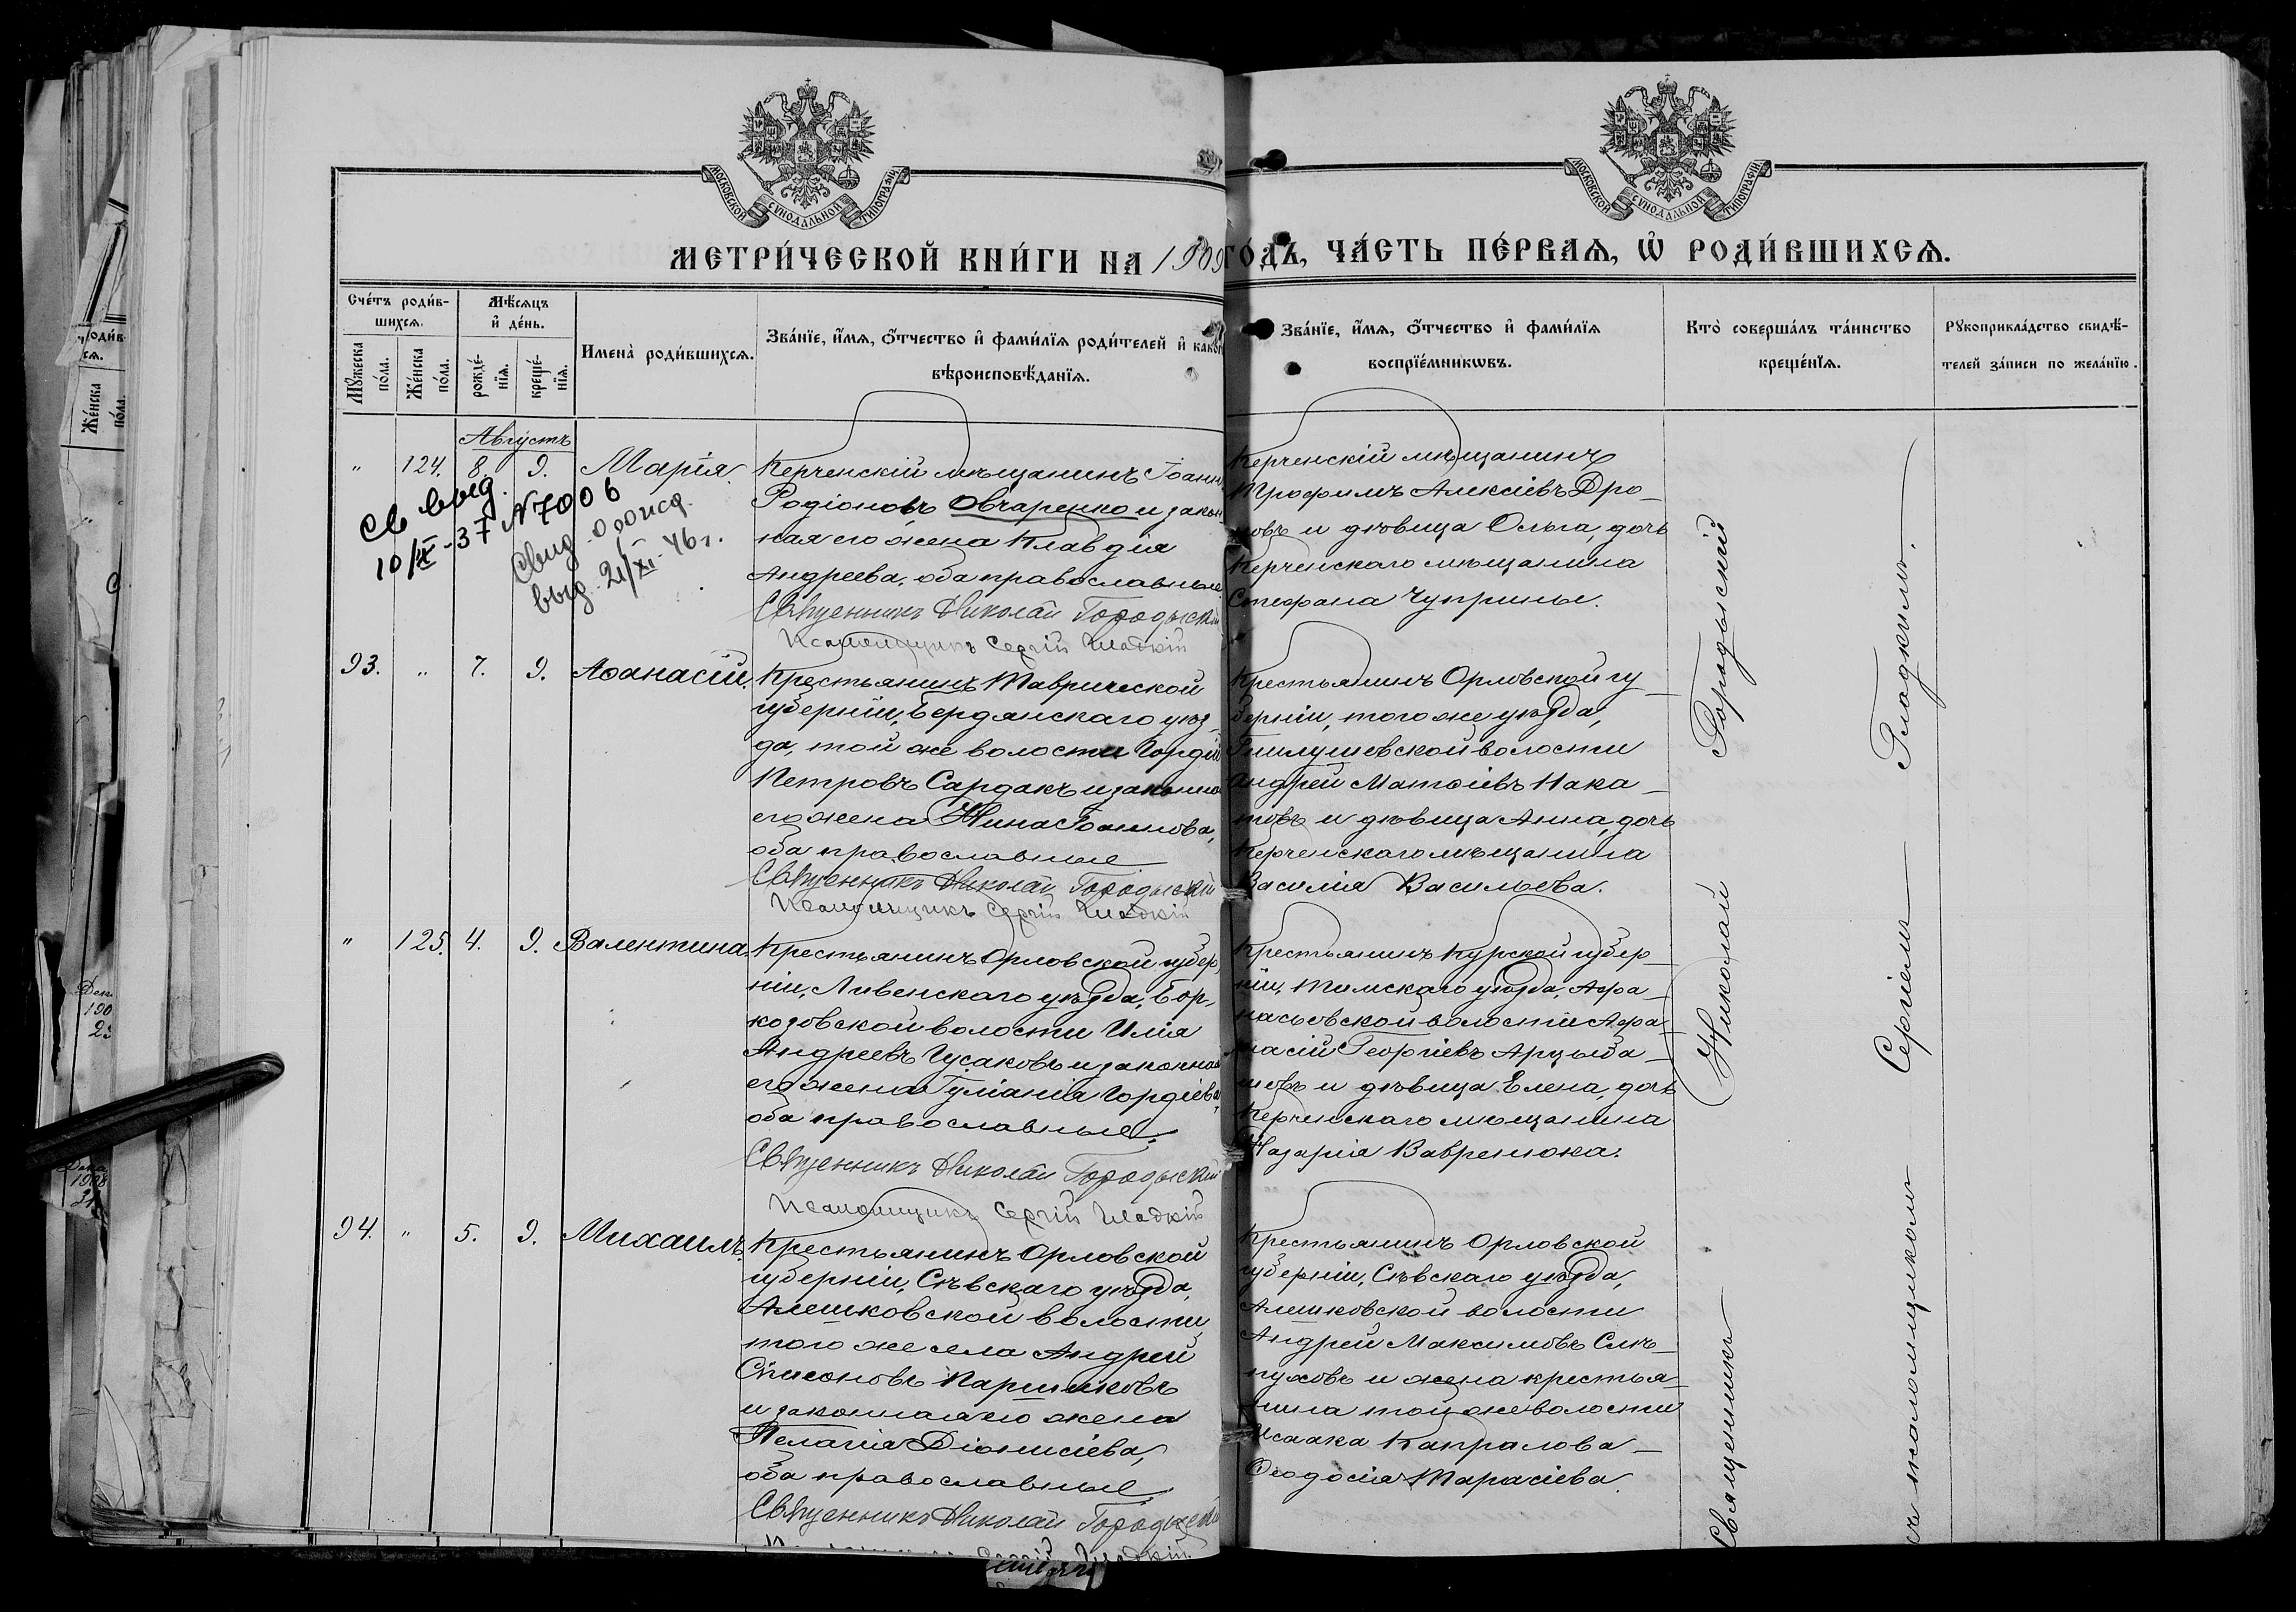 МОСКОВСКОЙ СѴНОДАЛЬНОЙ ТИПОГРАФІИ
МОСКОВСКОЙ СѴНОДАЛЬНОЙ ТИПОГРАФІИ
МЕТРИ́ЧЕСКОЙ КНИ́ГИ НА 1909 ГО́ДЪ, ЧА́СТЬ ПЕ́РВАЯ, Ѽ РОДИ́ВШИХСЯ.
Сче́тъ роди́в-
шихся.
Мꙋ́жеска по́ла.
Же́нска по́ла.
Мѣ́сяцъ
и҆ де́нь.
рожде́-
нїя.
креще́-
нїя.
Имена̀ роди́вшихся.
Зва́нїе, и҆́мя, ѻ҆́тчество и҆ фами́лїя роди́телей и҆ како́г
вѣроисповѣ́данїя.
Зва́нїе, и҆́мя, ѻ҆́тчество и҆ фами́лїя
воспрїе́мникѡвъ.
Кто̀ соверша́лъ та́инство
креще́нїя.
Рꙋкоприкла́дство свидѣ́-
телей за́писи по жела́нїю.
Августъ
" 124. 8. 9. Марія.
Св выд.
10/IX-37 N7006
Свид.
выд. 21/XI-46г.
Керченскій мѣщанинъ Іоаннъ
Родіоновъ Овчаренко и закон
ная его жена Клавдія
Андреева, оба православные
Священникъ Николай Городыскій
Псаломщикъ Сергій Гладкій
Керченскій мѣщанинъ
Трофимъ Алексіевъ Дро-
новъ и дѣвица Ольга, дочь
Керченскаго мѣщанина
Стефана Чуприны.
93. " 7. 9. Аѳанасій.
Крестьянинъ Таврической
губерніи, Бердянскаго уѣз-
да, той же волости Гордій
Петровъ Сардакъ и законная
его жена Нина Іоаннова,
оба православные
Священникъ Николай Городыскій
Псаломщикъ Сергій Гладкій
Крестьянинъ Орловской гу-
берніи, того же уѣзда,
волости
Андрей Матѳіевъ
и дѣвица Анна, дочь
Керченскаго мѣщанина
Василія Васильева.
" 125. 4. 9. Валентина.
Крестьянинъ Орловской губер-
ніи, Ливенскаго уѣзда, Бор-
ковской волости Илія
Андреевъ Гусаковъ и законная
его жена Гордіева,
оба православные.
Священникъ Николай Городыскій
Псаломщикъ Сергій Гладкій
Крестьянинъ Курской губер-
ніи, Тимскаго уѣзда, Афа-
насьевской волости Афа-
насій Георгіевъ Арцыба-
шовъ и дѣвица Елена, дочь
Керченскаго мѣщанина
Назарія Вавренюка.
94. " 5. 9. Михаилъ.
Крестьянинъ Орловской
губерніи, Сѣвскаго уѣзда,
Алешковской волости,
того же села Андрей
Симеоновъ Паршиковъ
и законная его жена
Пелагія Діонисіева,
оба православные.
Священникъ Николай Городыскій
Сергій Гладкій
Крестьянинъ Орловской
губерніи, Сѣвскаго уѣзда,
Алешковской волости
Андрей Максимовъ Слѣ-
пуховъ и жена крестья-
нина той же волости
Исаака Капралова -
Ѳеодосія Тарасіева.
Священникъ Николай Городыскій
съ псаломщикомъ Сергіемъ Гладкимъ.